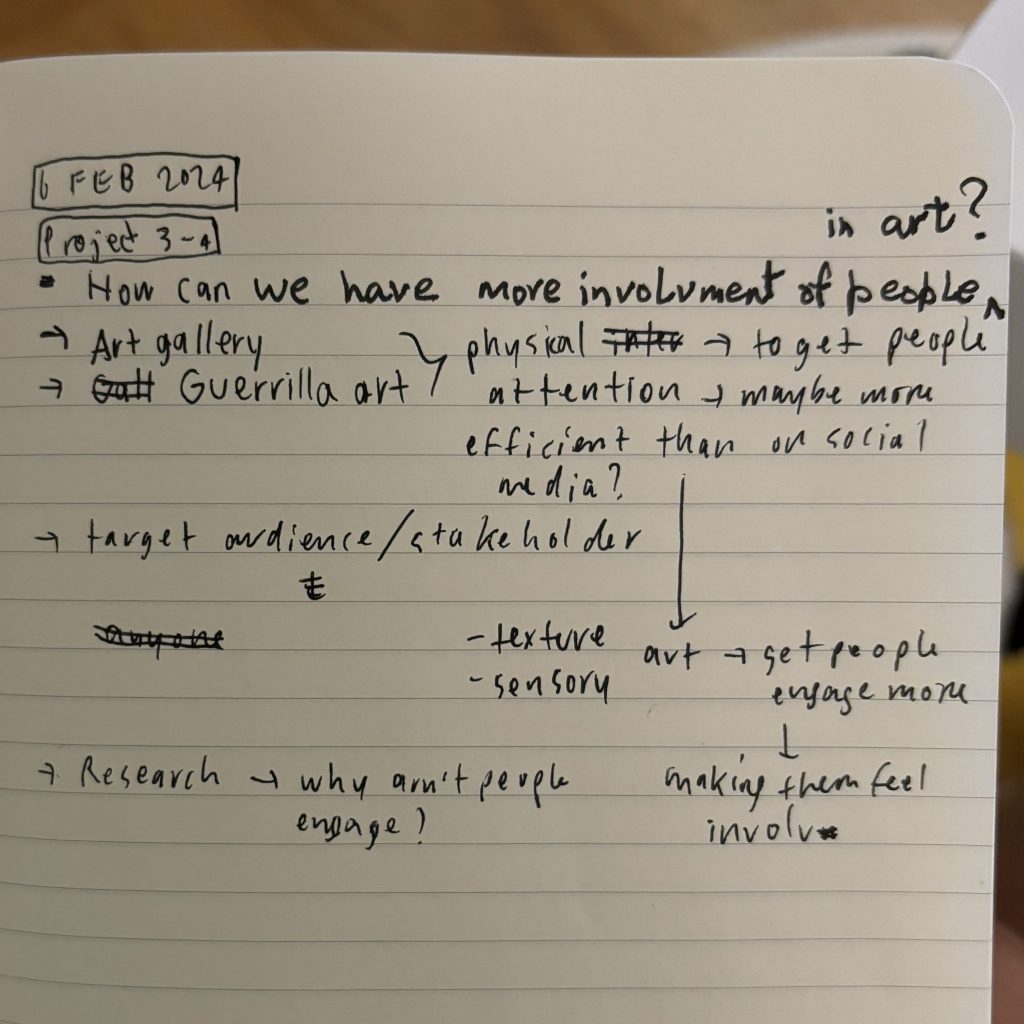 6 FEB 2024
Project 3-4
in art?
• How can we have more involvment of people ^
→ Art gallery
→ Guerrilla art
physical → to get people
attention → maybe more
efficient than on social
media?
→ target audience/stakeholder
t
anyone
- texture
- sensory
art → get people
engage more
→ Research → why arn't people
engage?
making them feel
involv